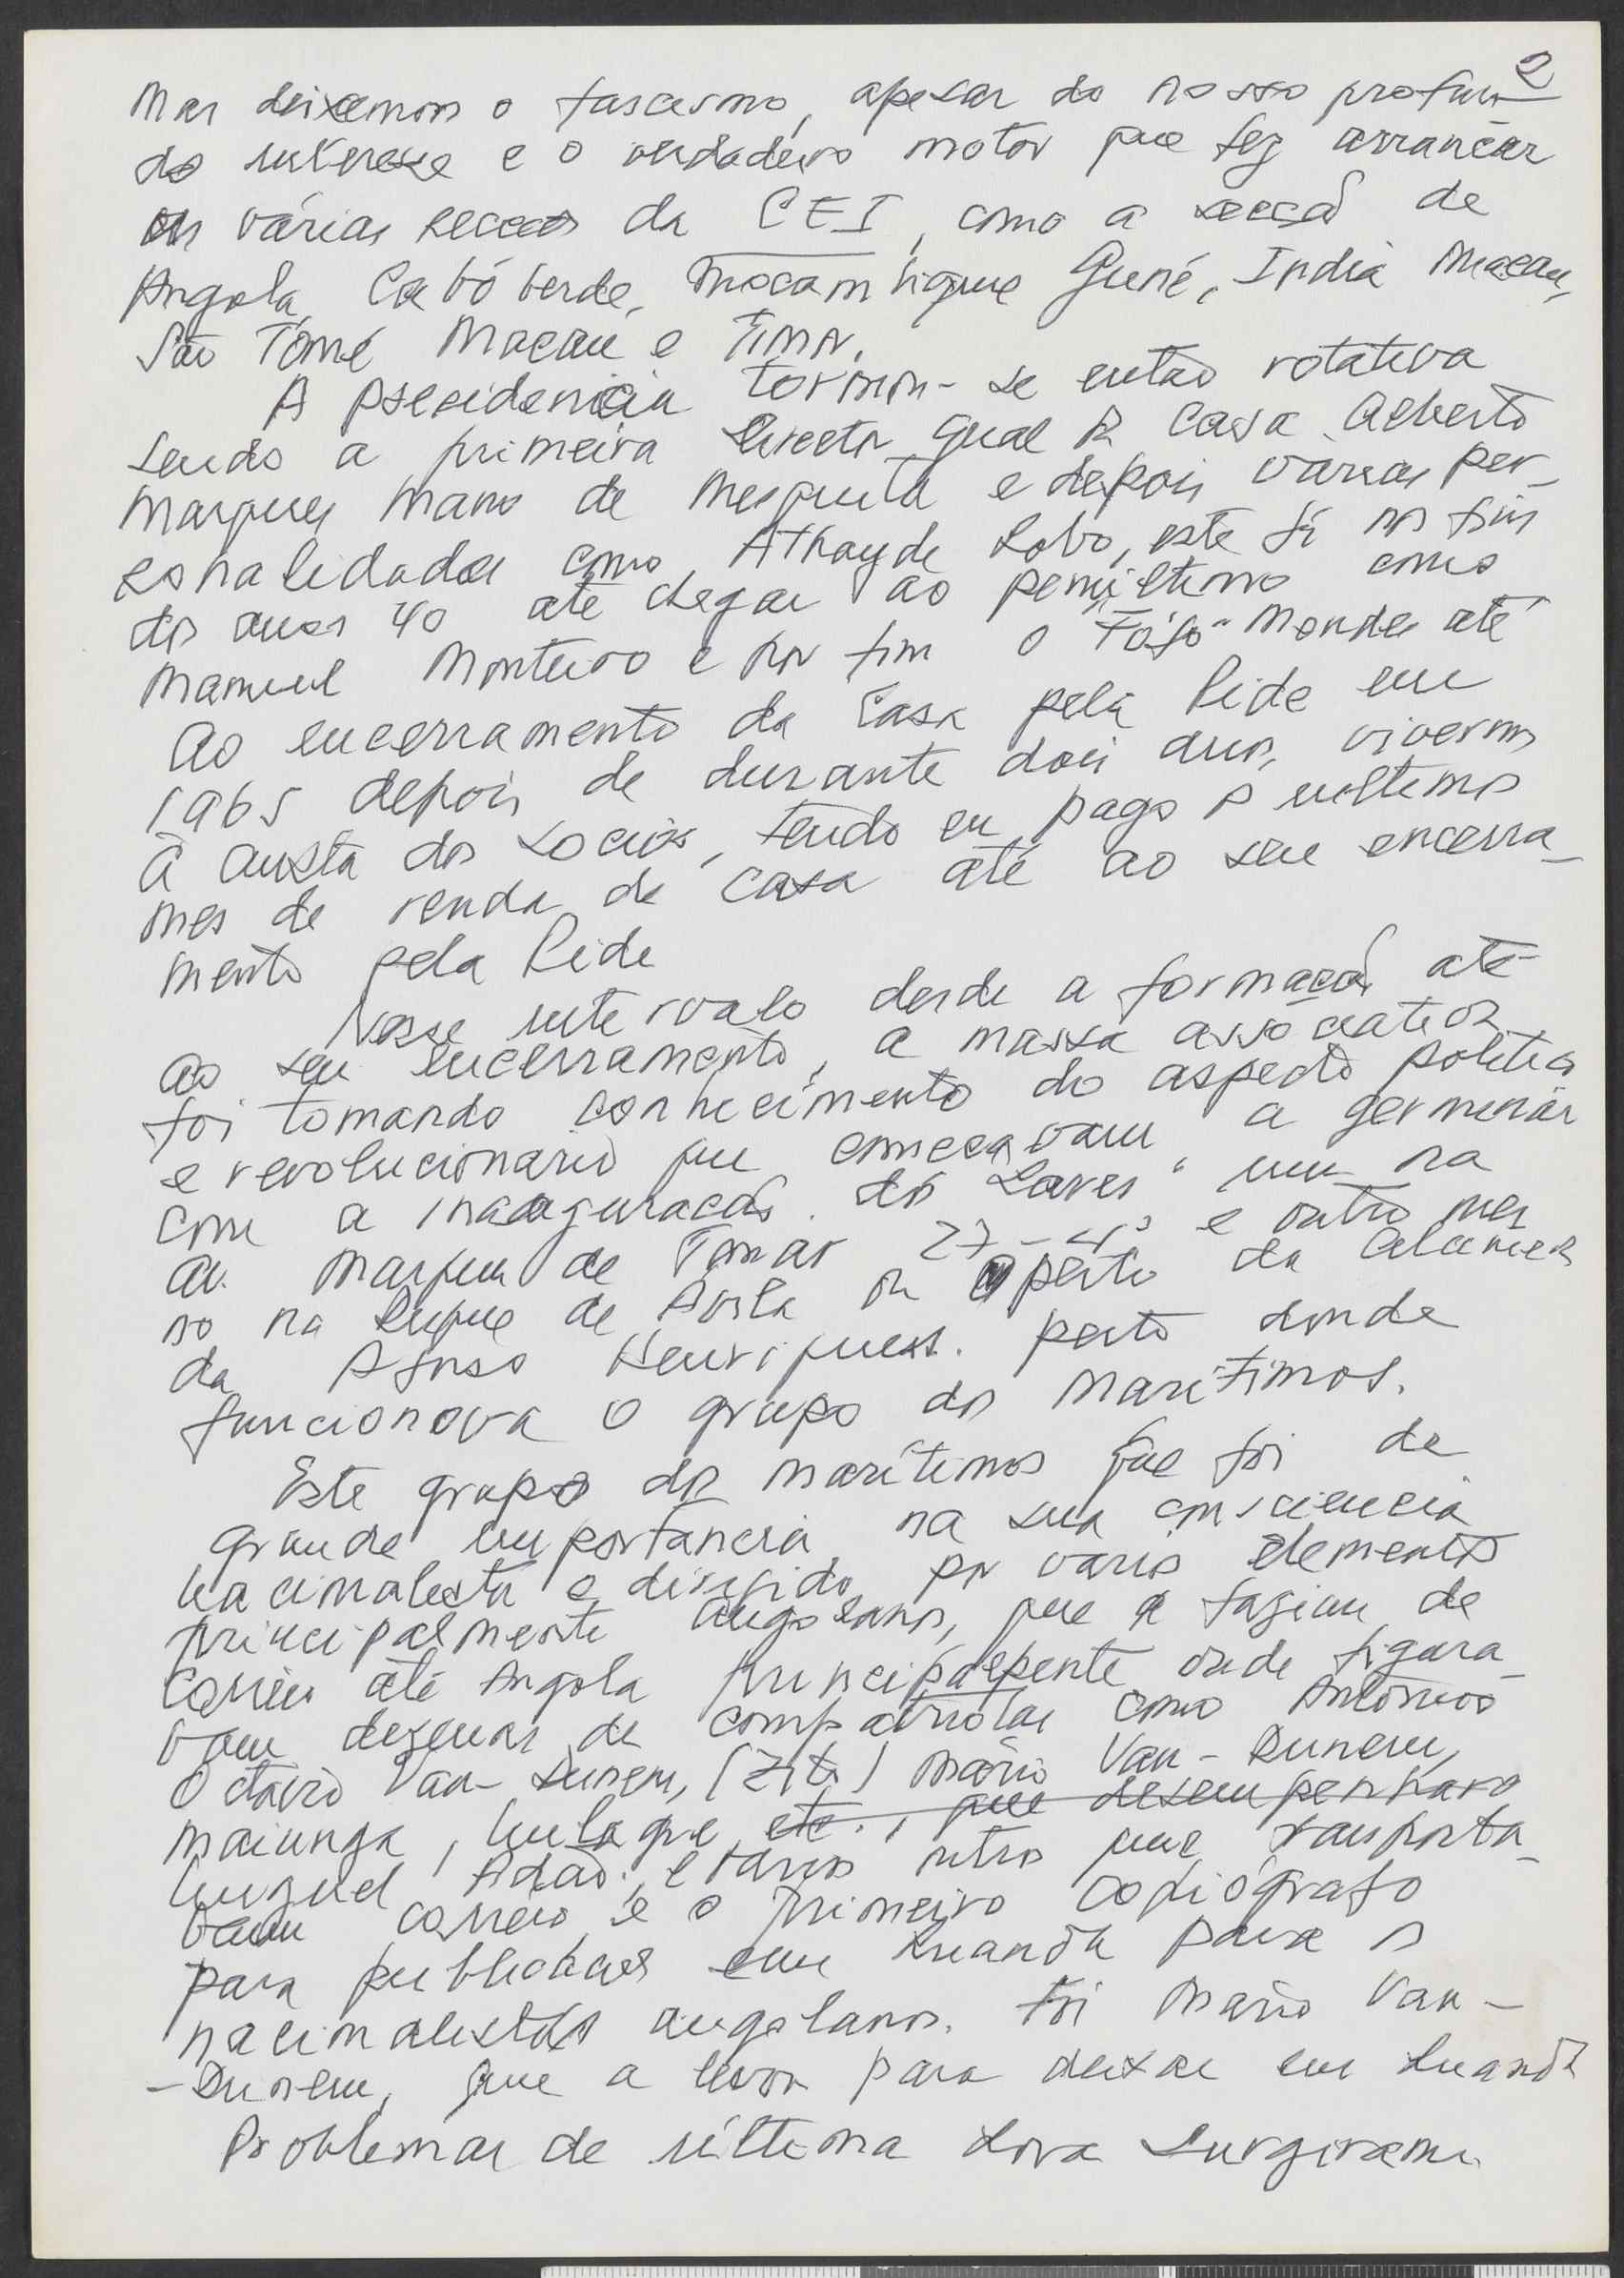 2
Mas deixemos o fascismo, apesar do nosso profun-
do interesse e o verdadeiro motor que fez arrancar
as várias seccoes da CEI, como a secção de
Angola, Cabo Verde, Mocambique Guné, India Macau,
São Tomé Macau e Timor.
A presidencia tornou-se então rotativa
sendo a primeira Director Geral da Casa Alberto
Marques Mano de Mesquita e depois várias per-
sonalidades como Athayde Lobo, este já no fim
dos anos 40 até chegar ao penúltimo como
Manuel Monteiro e por fim o "Fófo" Mendes até
Ao encerramento da Casa pela Pide em
1965 depois de durante dois anos, vivermos
à custa dos socios, tendo eu pago o ultimo
mes de renda da casa até ao seu encerra-
mento pela Pide
Nesse intervalo desde a formação até
ao seu encerramento, a massa associativa
foi tomando conhecimento do aspecto politico
e revolucionario que começavam a germinar
com a inauguracão dos Lares um na
Av. Marques de Tomar 27-4º e outro mes
mo na Duque de Ávila ou perto da Alame
da Afonso Henriques. perto donde
funcionava o grupo dos Maritimos.
Este grupo dos marítimos que foi de
grande importancia na sua consciencia
nacionalista e dirigido por varios elementos
principalmente angolanos, que a faziam de
Correio até Angola principalpente onde figura-
vam dezenas de compatriotas como Antonio
Octávio Van-Dunem, (Zito) Mário Van-Dunem,
Maiunga, etc., que desempenharam
Miguel Adão, e varios outros que transporta-
vam correio, e o primeiro copiógrafo
para publicacoes em Luanda para os
nacionalistas angolanos. Foi Mario Van-
-Dunem, que a levou para deixar em Luanda
Problemas de última hora surgiram.